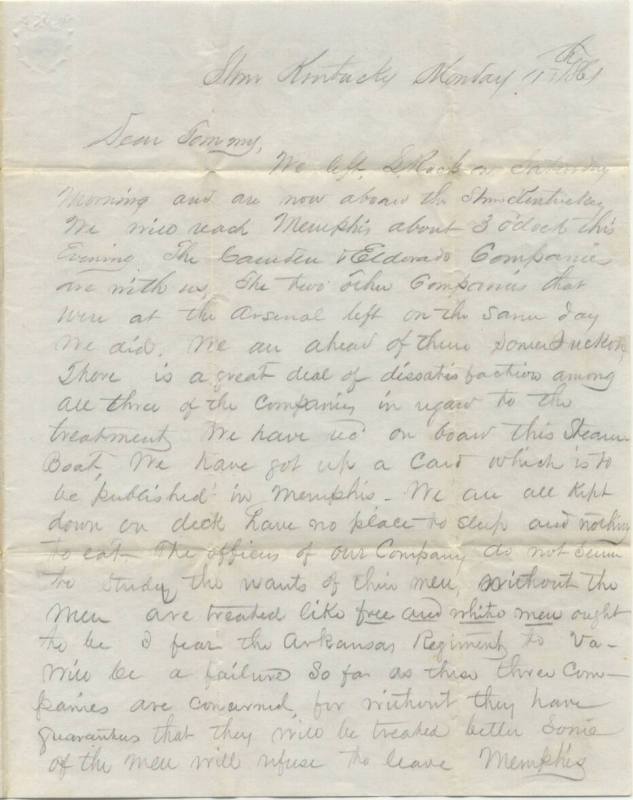 Stmr Kentucky Monday 1861
Dear Tommy,
We left L Rock on Saturday
Morning and are now aboard the Stmr Kentucky
We will reach Memphis about 3 o'clock this
Evening The Camden & Eldorado Companies
are with us, The two other Companies that
were at the Arsenal left on the same day
We did. We are ahead of them
There is a great deal of dissatisfaction among
all three of the Companies in regard to the
treatment We have rec'd on board this Steam
Boat We have got up a Card which is to
be "published" in Memphis - We are all kept
down on deck have no place to sleep and nothing
to eat - The officers of our Company do not seem
to study the wants of their men, without the
men are treated like free and white men ought
to be I fear the Arkansas Regiment to Va-
will be a failure So far as these three Com-
panies are concerned, for without they have
guarantees that they will be treated better Some
of the men will refuse to leave Memphis